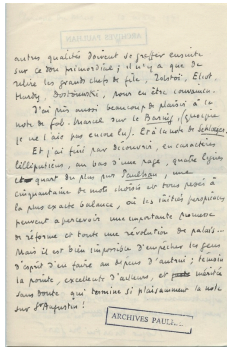 ARCHIVES PAULHAN
autres qualités doivent se greffer ensuite
sur ce don primordial ; il n'y a que de
relire les grands chefs de file, Tolstoï, Eliot,
Hardy, Dostoïevski, pour en être convaincu.
J'ai pris aussi beaucoup de plaisir à la
note de Gab. Marcel sur le Barnès, (quoique
je ne l'aie pas encore lu). Et à la note de
Et j'ai fini par découvrir, en caractères
lilliputiens, au bas d'une page, quatre lignes
quart du plus pur Paulhan, une
cinquantaine de mots choisis et tous pesés à
la plus exacte balance, où les initiés perspicaces
peuvent apercevoir une importante promesse
de réforme et toute une révolution de palais...
Mais il est bien impossible d'empêcher les gens
d'esprit d'en faire au dépens d'autrui ; témoin
la pointe, excellente d'ailleurs, et méritée
sans doute qui termine si plaisamment la note
sur St Augustin !
ARCHIVES PAULHAN